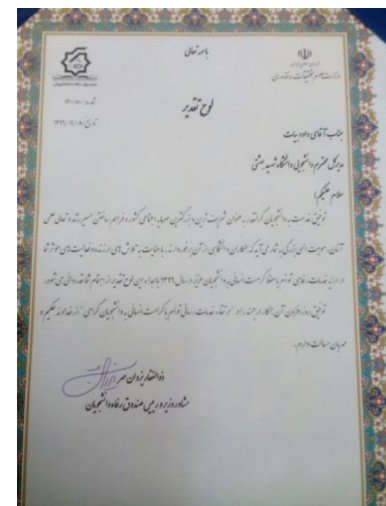 باسمه تعالی
جمهوری اسلامی ایران
وزارت علوم تحقیقات و فناوری
صندوق رفاه دانشجویان
لوح تقدیر
جناب آقای داود بیات
مدیرکل محترم دانشجویی دانشگاه شهید بهشتی
سلام علیکم؛
توفیق خدمت به دانشجویان گرانقدر به عنوان شریف ترین و بزرگترین سرمایه اجتماعی کشور و فراهم ساختن مسیر رشد و تعالی علمی
آنان، موهبت الهی بزرگی به شمار می آید که همکاران دانشگاهی از آن برخوردارند. با عنایت به تلاش های ارزنده و فعالیت های موثر شما
در ارایه خدمات رفاهی توام با حفظ کرامت انسانی به دانشجویان عزیز در سال ۱۳۹۶ با اهداء این لوح تقدیر از اهتمام شما قدردانی می شود.
توفیق روز افزون آن همکار ارجمند را در "ارتقاء خدمات رسانی توام با کرامت انسانی به دانشجویان گرامی" از خداوند حکیم و
مهربان مسالت دارم.
ذوالفقار یزدان مهر
مشاور وزیر و رییس صندوق رفاه دانشجویان